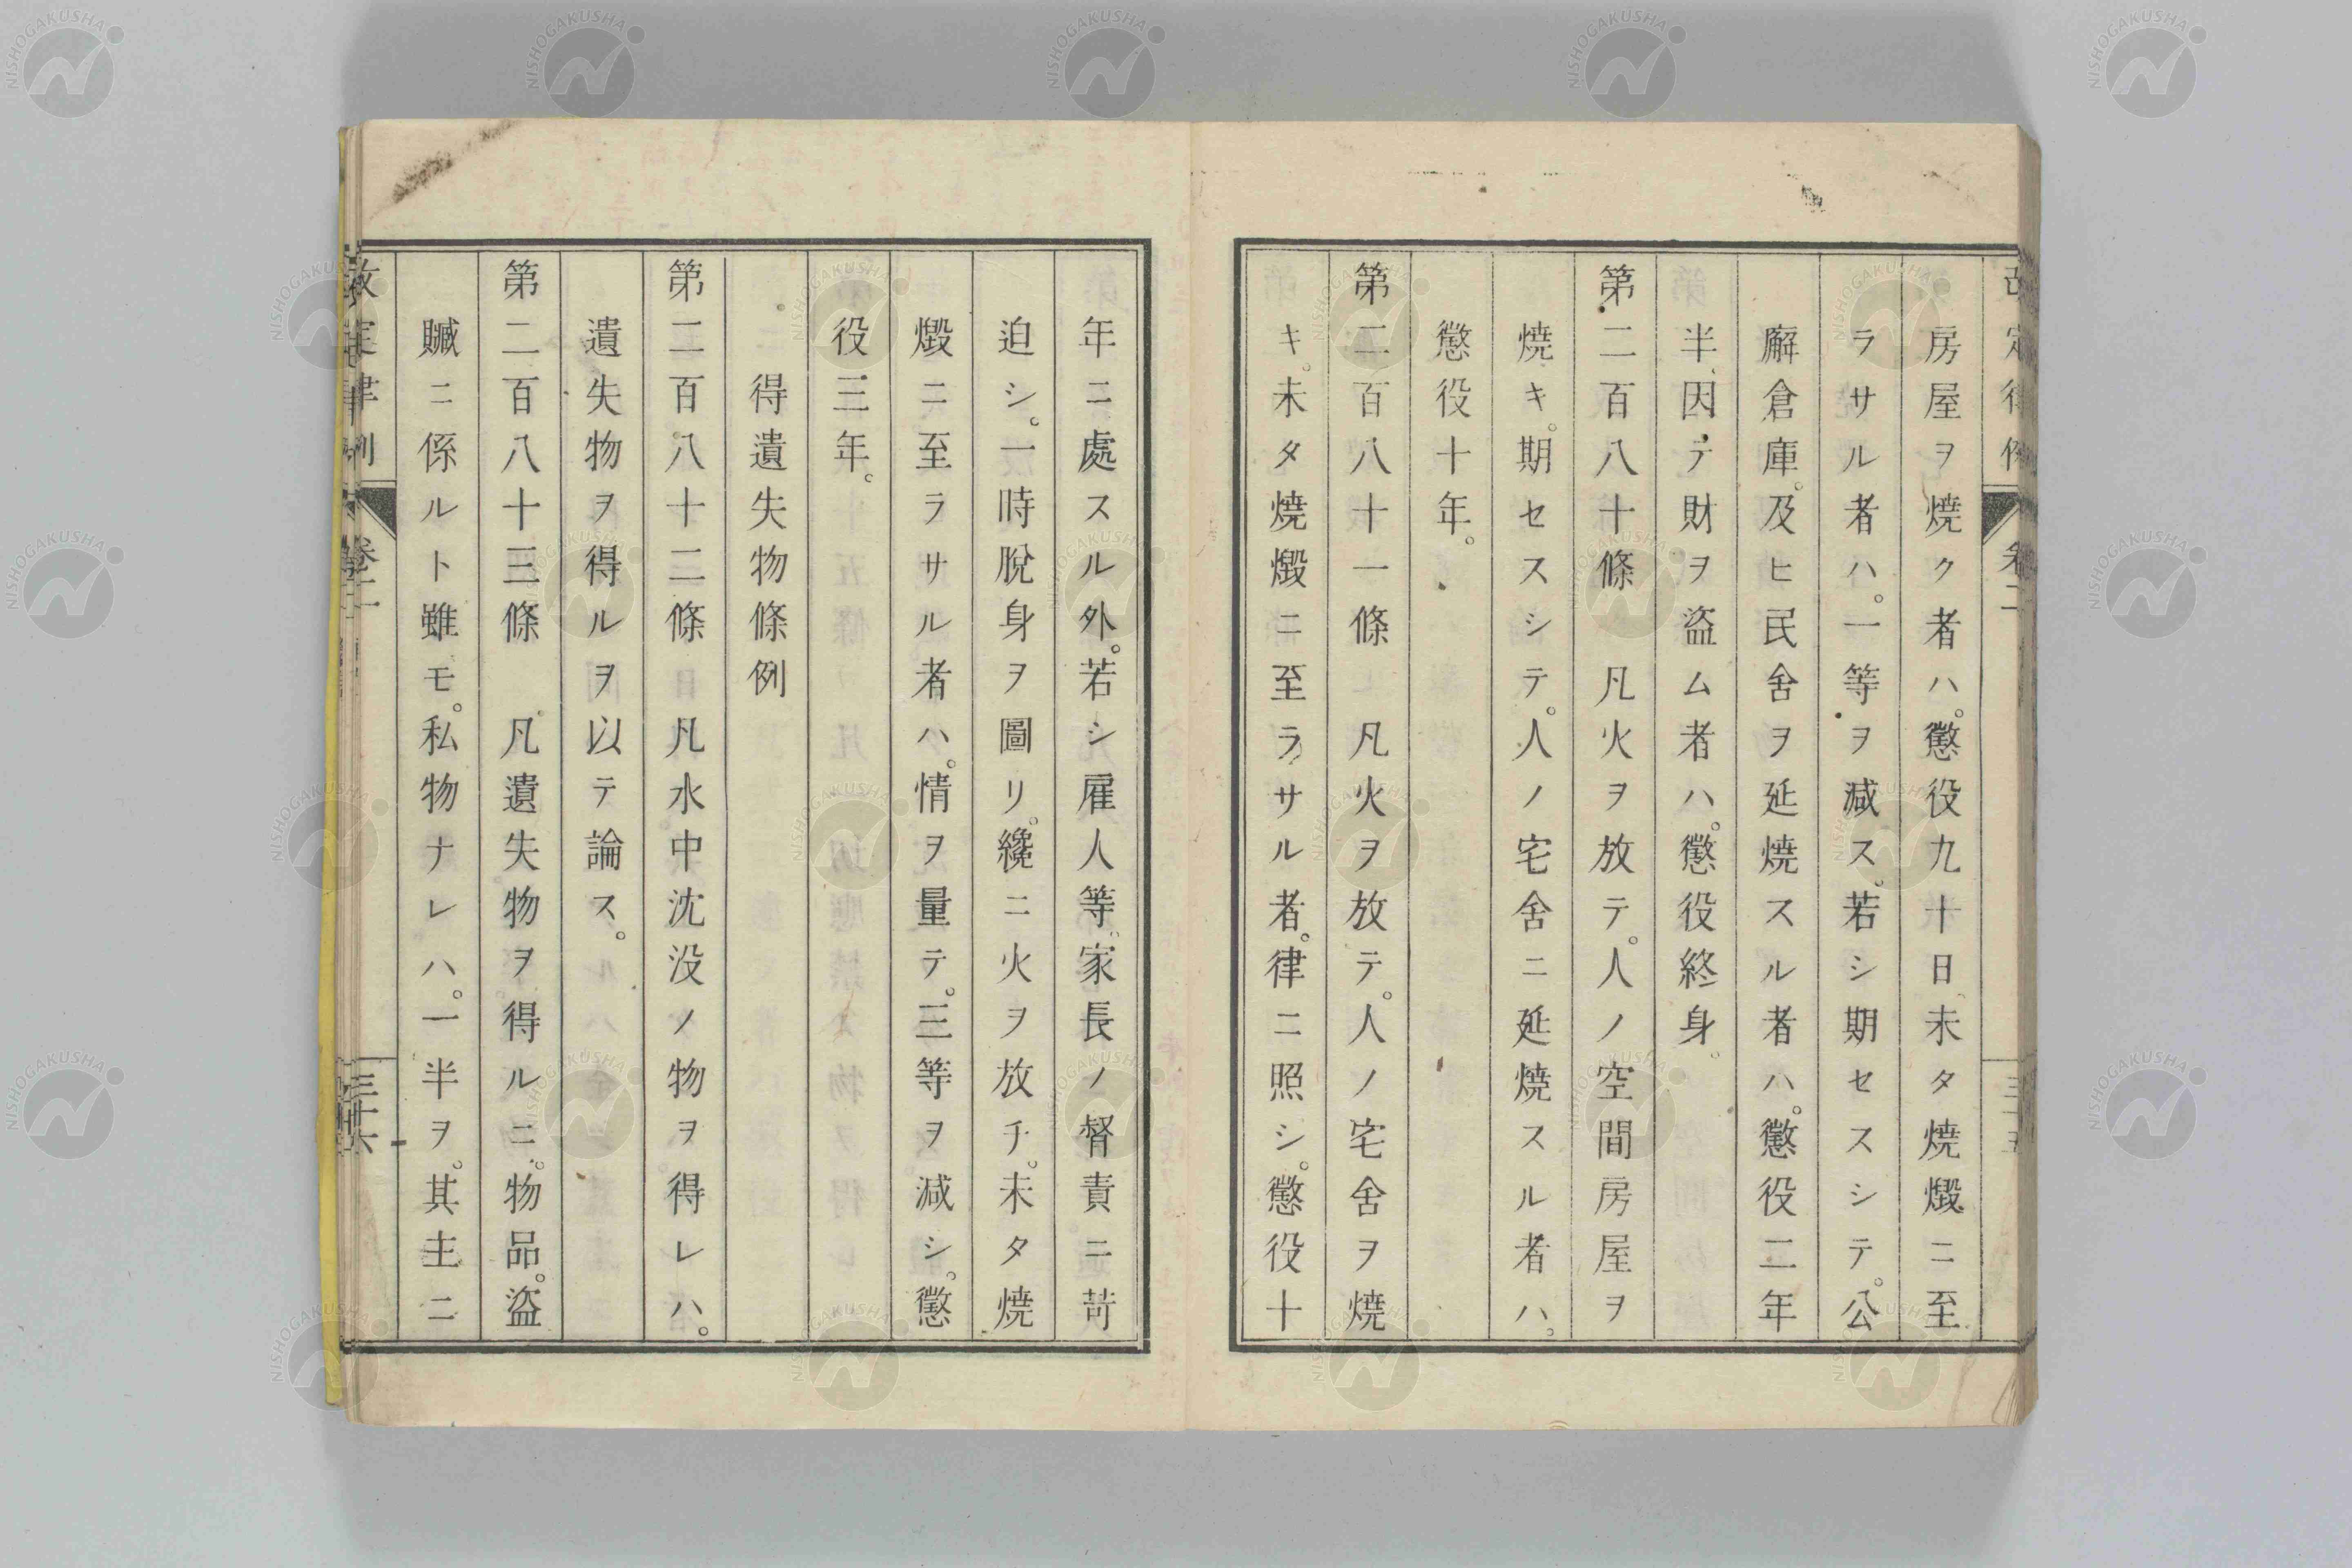 改定律例 卷二 三十五
房屋ヲ燒ク者ハ。懲役九十日、未タ燒燬ニ至
ラサル者ハ。一等ヲ減ス。若シ期セスシテ。公
廨倉庫。及ヒ民舍ヲ延燒スル者ハ。懲役二年
半、因テ財ヲ盜ム者ハ。懲役終身。
第二百八十條 凡火ヲ放テ。人ノ空閒房屋ヲ
燒キ。期セスシテ。人ノ宅舍ニ延燒スル者ハ。
懲役十年。
第二百八十一條 凡火ヲ放テ。人ノ宅舍ヲ燒
キ。未タ燒燬ニ至ラサル者。律ニ照シ。懲役十
年ニ處スル外。若シ雇人等。家長ノ督責ニ苛
迫シ。一時脫身ヲ圖リ。纔ニ火ヲ放チ。未タ燒
燬ニ至ラサル者ハ。情ヲ量テ。三等ヲ減シ。懲
役三年。
得遺失物條例
第二百八十二條 凡水中沈没ノ物ヲ得レハ。
遺失物ヲ得ルヲ以テ論ス。
第二百八十三條 凡遺失物ヲ得ルニ。物品。盜
贓ニ係ルト雖モ。私物ナレハ。一半ヲ。其主ニ
改定律例 卷二 三十六
NISHOGAKUSHA